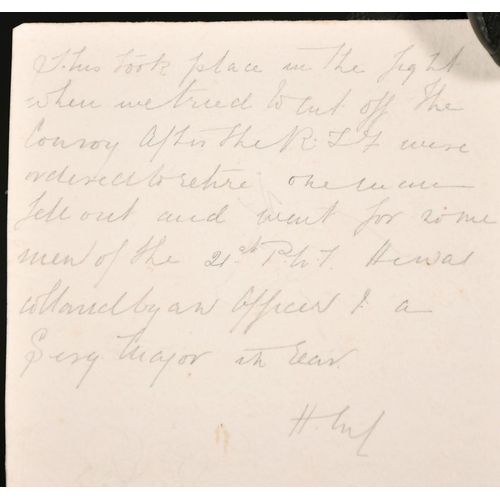 This took place in the fight
when we tried to cut off the
Convoy After the R. I. F were
ordered to retire one man
fell out and went for some
men of the 21st He was
collared by an Officer & a
Serg Major in rear
H.